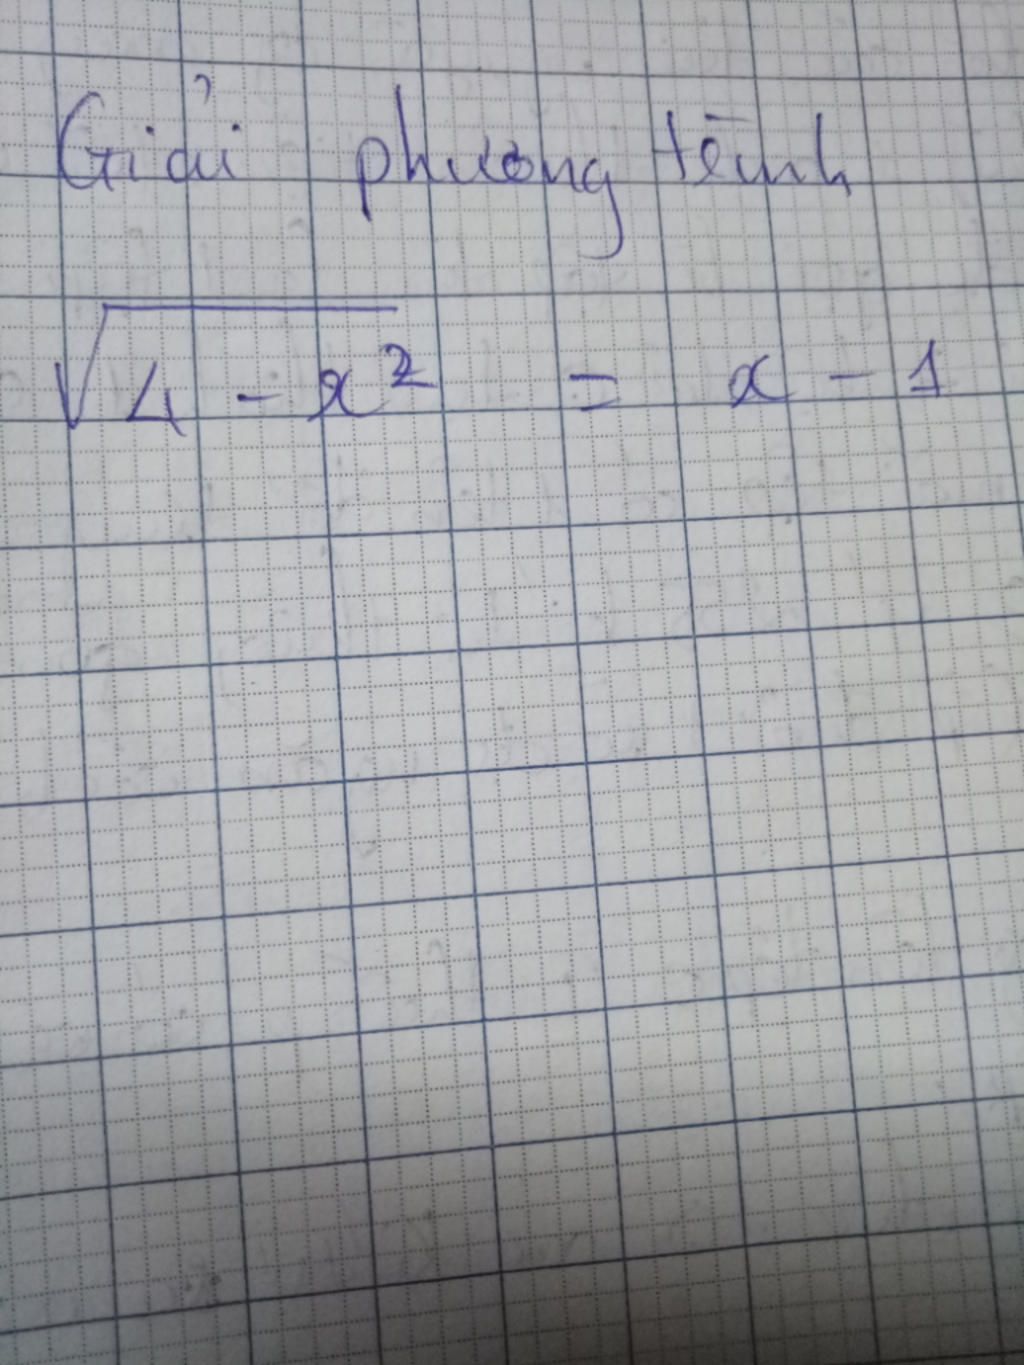 Giải phương trình
√4 - x² = x - 1